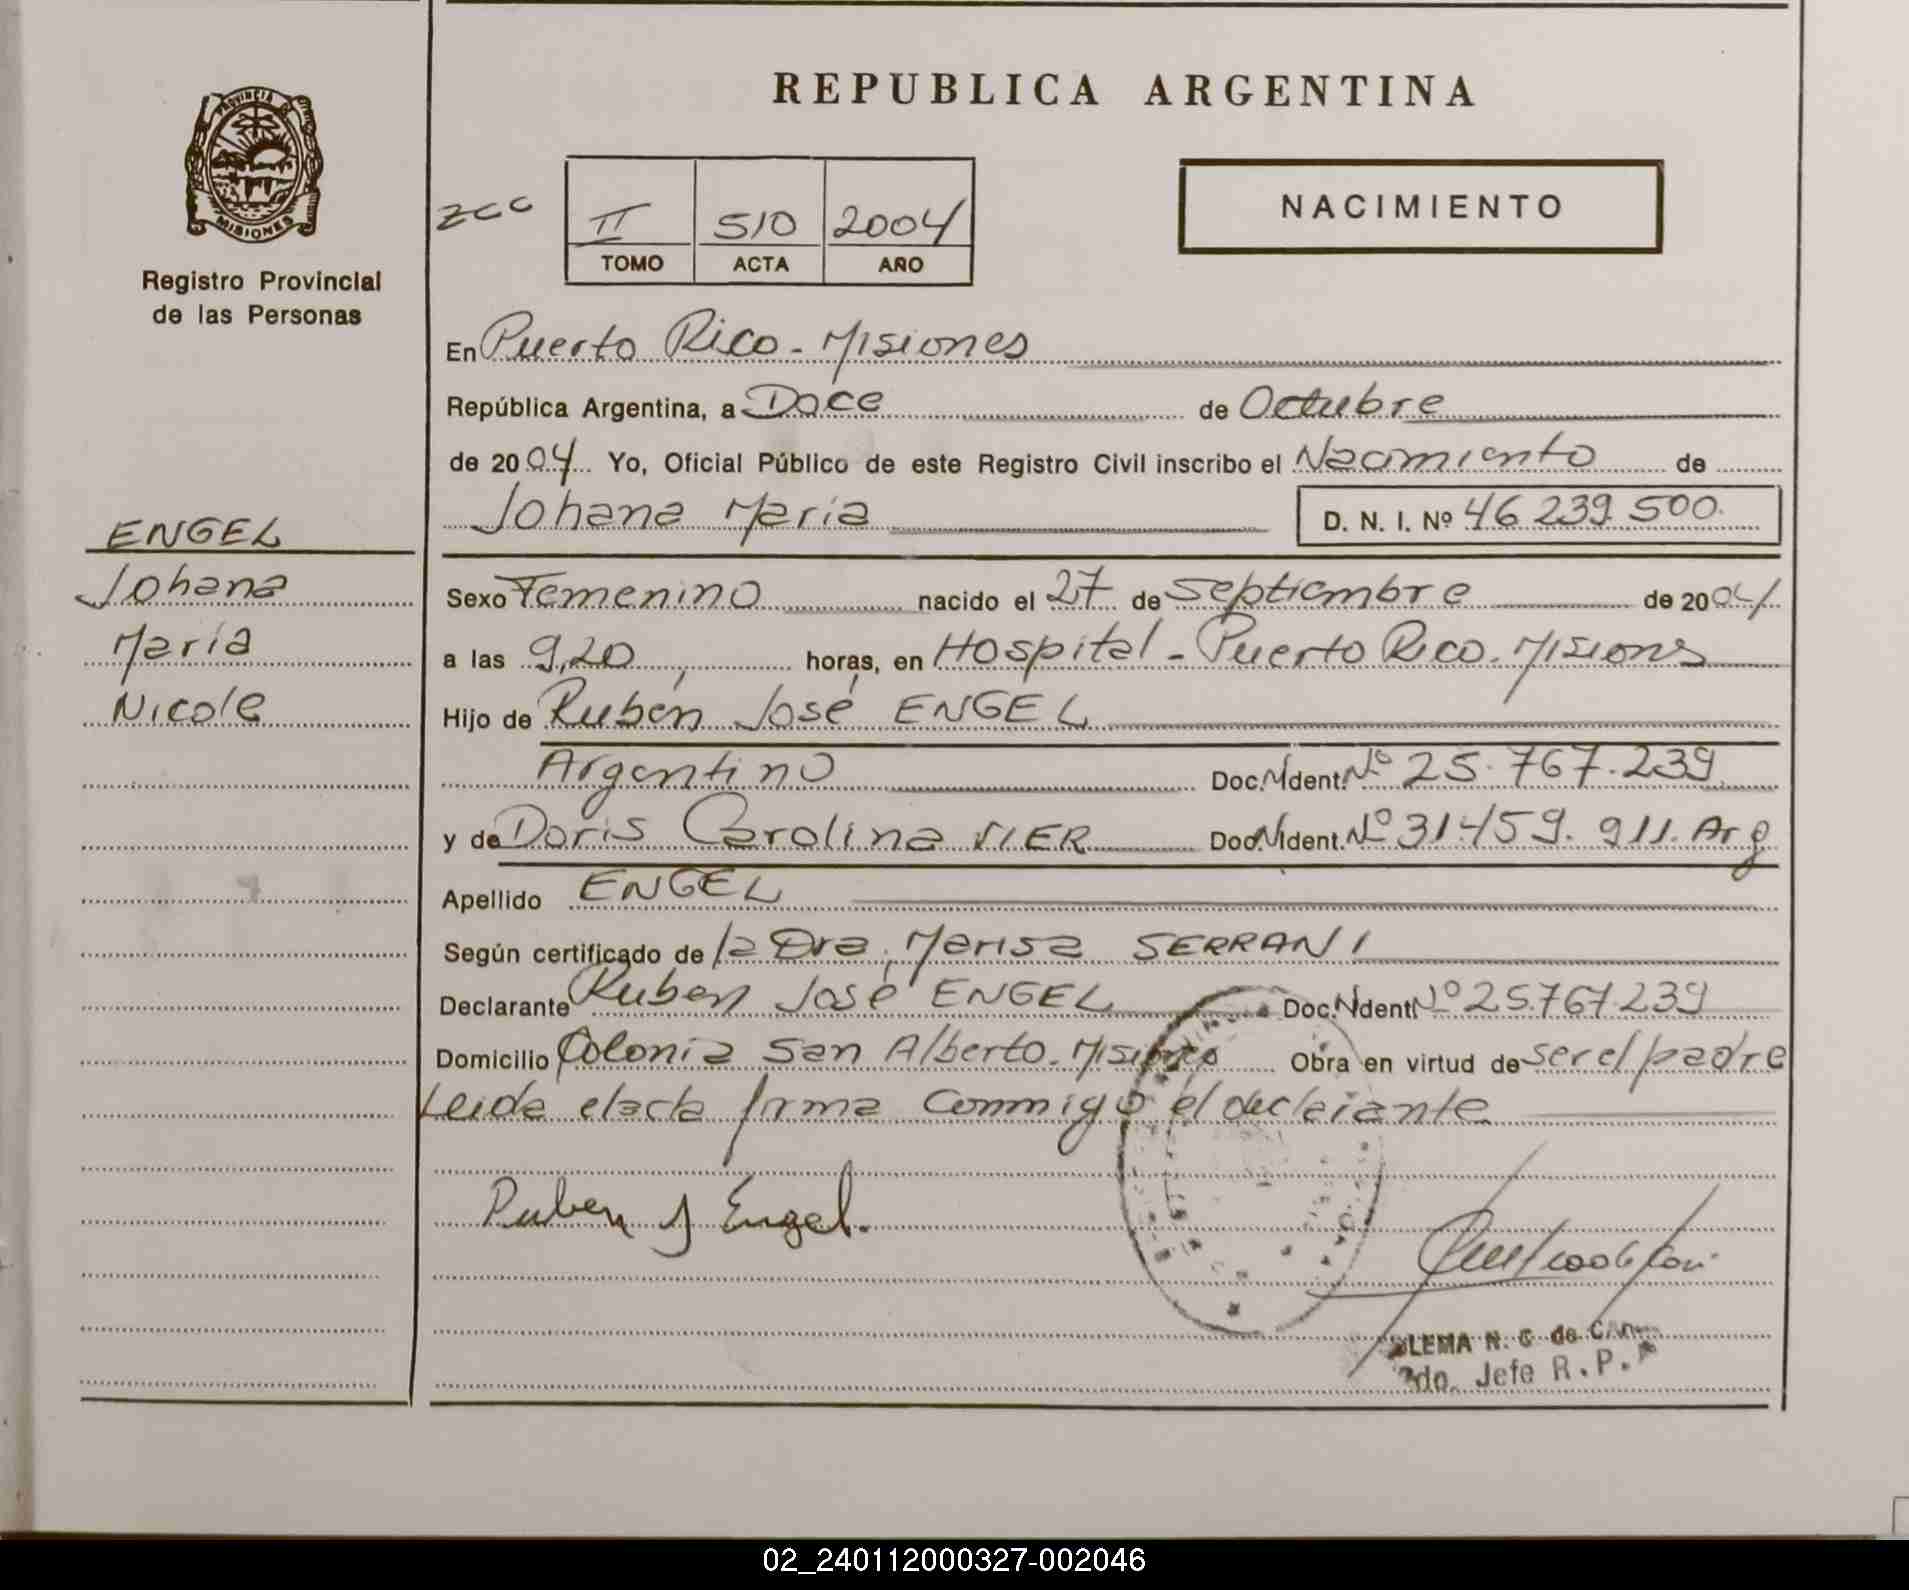 REPUBLICA ARGENTINA
PROVINCIA DE
MISIONES
Registro Provincial
de las Personas
II 510 2004
TOMO ACTA AÑO
NACIMIENTO
En Puerto Rico - Misiones
República Argentina, a Doce de Octubre
de 2004 Yo, Oficial Público de este Registro Civil inscribo el Nacimiento de
Johana Maria D. N. I. Nº 46 239 500
ENGEL
Johana
María
Nicole
Sexo Femenino nacido el 27 de Septiembre de 2004
a las 9,20 horas, en Hospital - Puerto Rico. Misiones
Hijo de Rubén José ENGEL
Argentino Doc. Ident. Nº 25.767.239
y de Doris Carolina VIER Doc. Ident. Nº 31.459.911. Arg
Apellido ENGEL
Según certificado de la Dra. Marisa SERRANI
Declarante Ruben José ENGEL Doc. Ident. Nº 25.767.239
Domicilio Colonia San Alberto. Misiones Obra en virtud de ser el padre
Leida el acta firma conmigo el declarante
Ruben J Engel.
N. G de
2do. Jefe R. P.
02_240112000327-002046